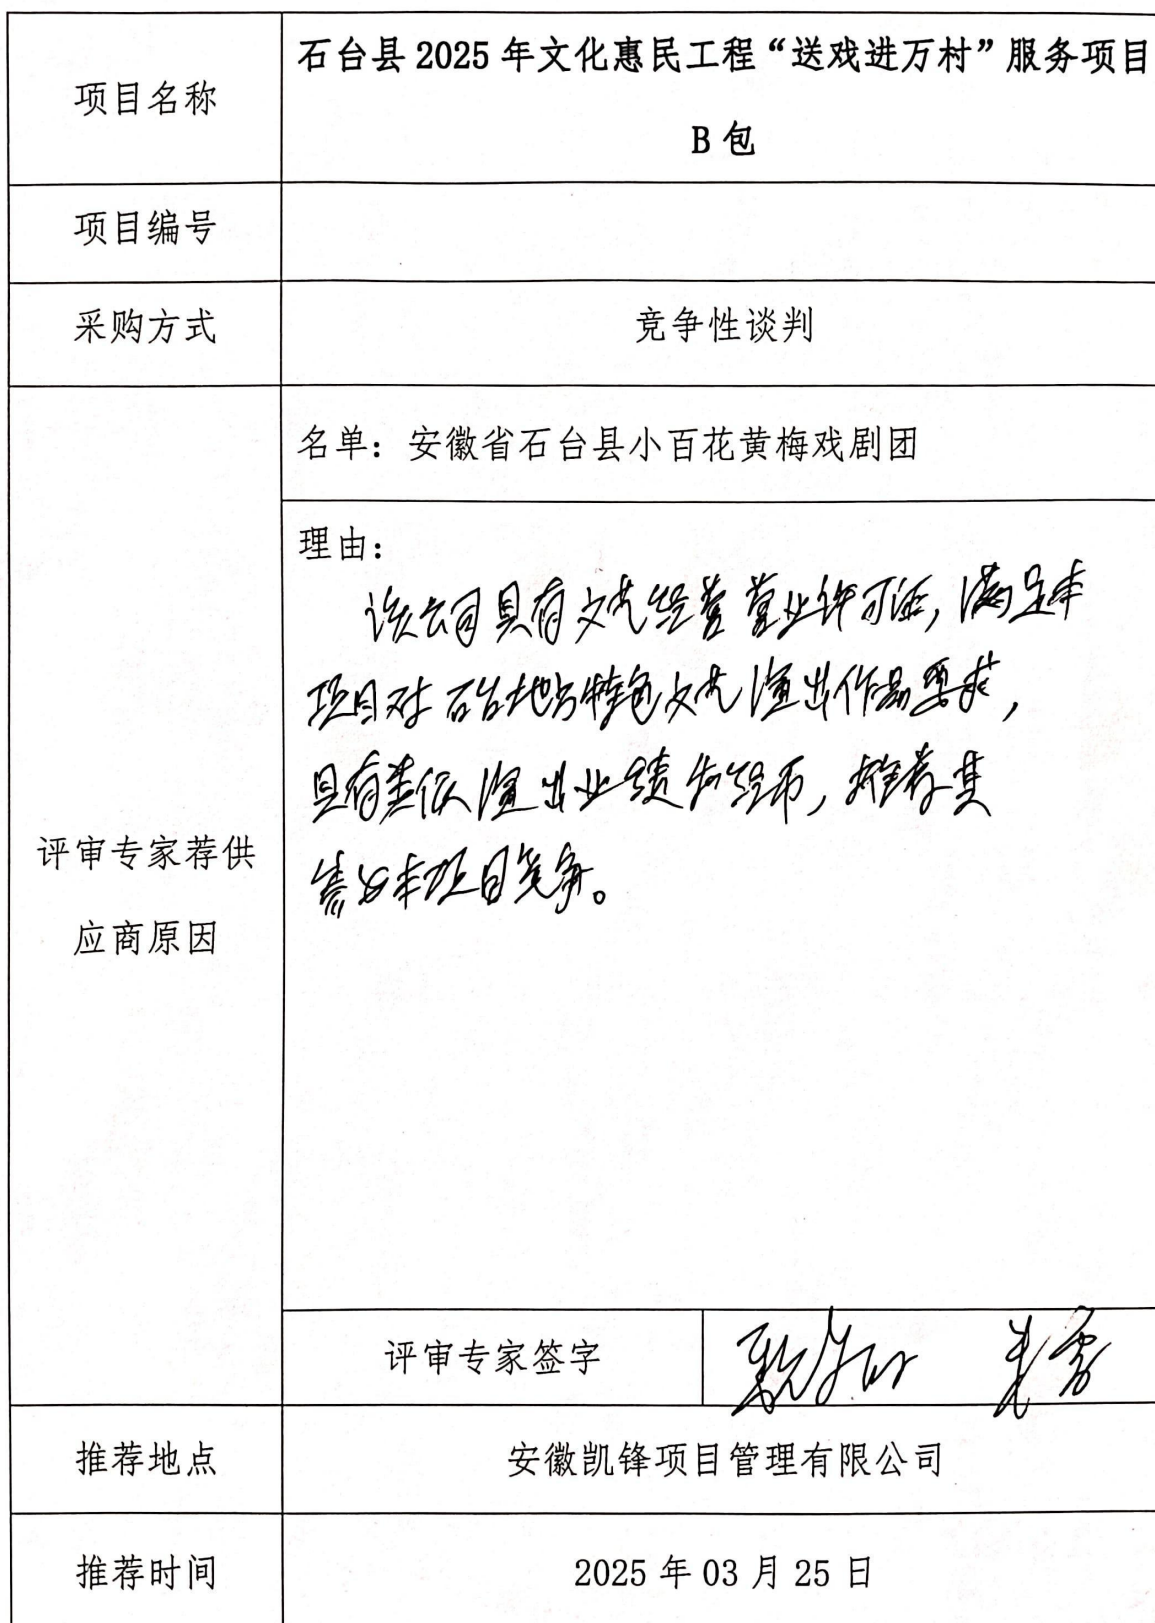 项目名称
石台县 2025 年文化惠民工程“送戏进万村”服务项目
B 包
项目编号
采购方式
竞争性谈判
评审专家荐供
应商原因
名单：安徽省石台县小百花黄梅戏剧团
理由：
该公司具有文艺经营营业许可证，满足本
项目对石台地方特色文艺演出作品要求，
具有类似演出业绩和经历，推荐其
参与本项目竞争。
评审专家签字
推荐地点
安徽凯锋项目管理有限公司
推荐时间
2025 年 03 月 25 日